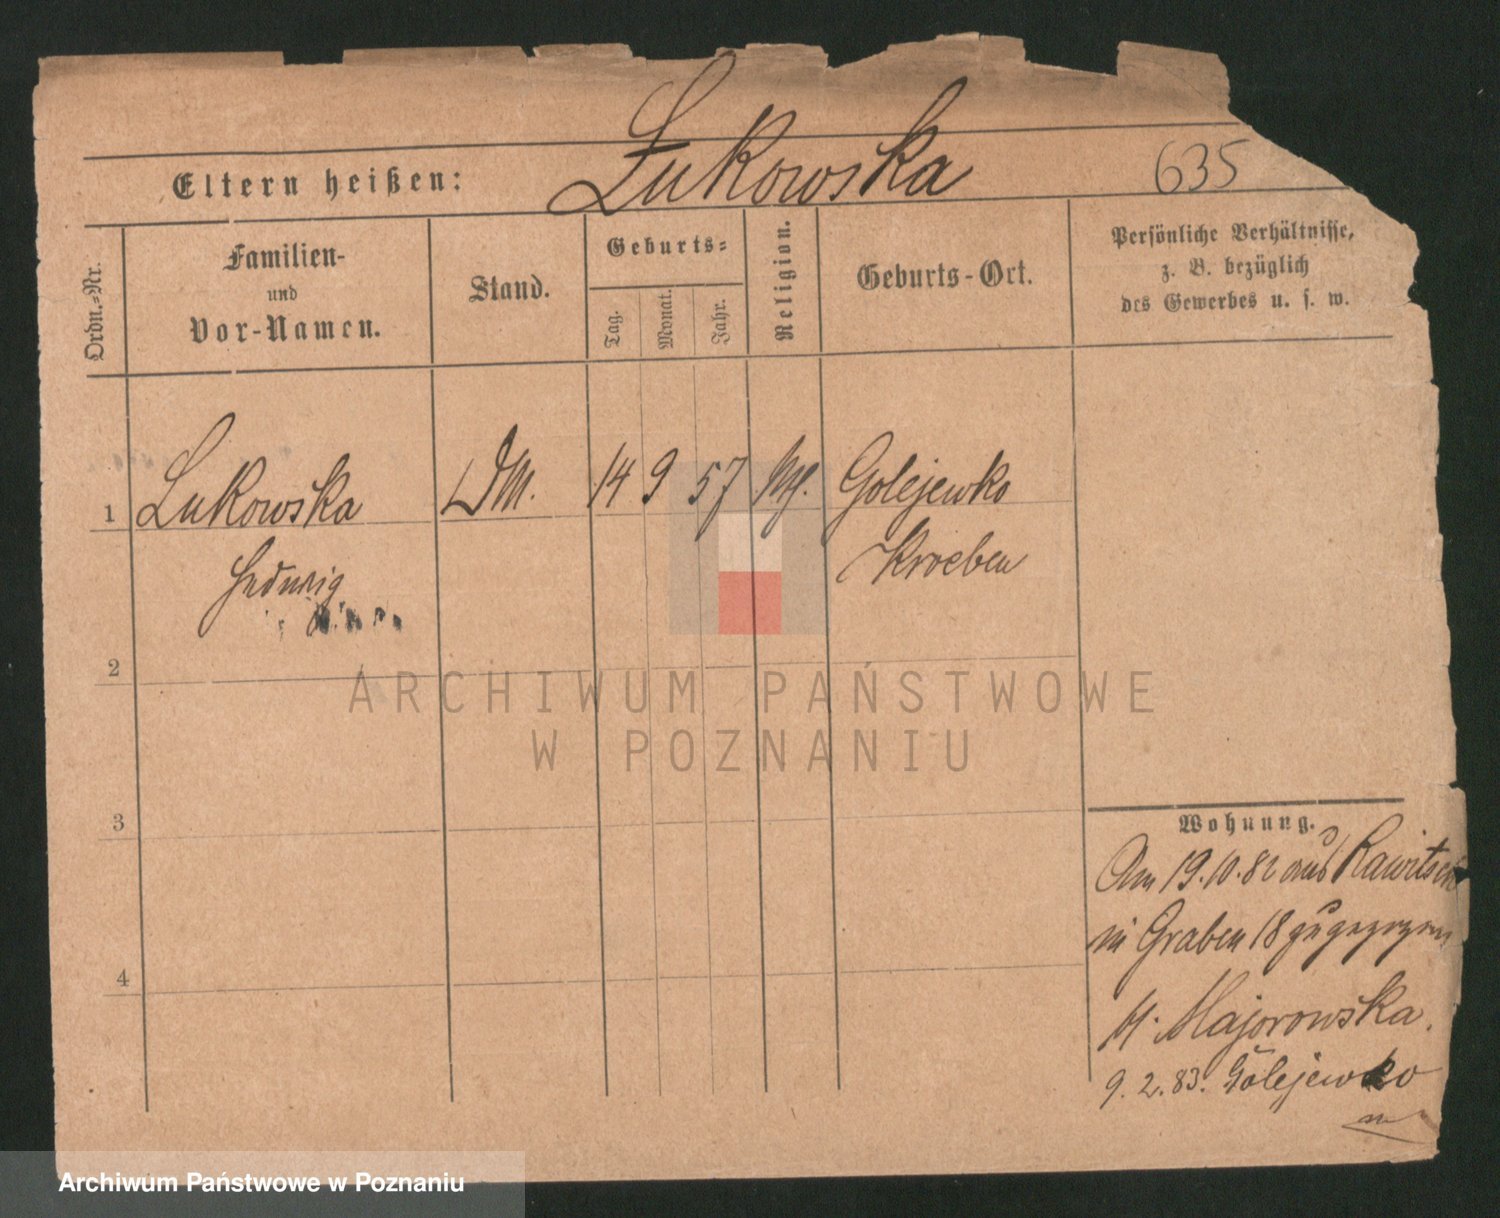 Łukowska
635
Eltern heißen:
Ordn.-Nr.
Familien-
und
Vor-Namen.
Stand.
Geburts-
Tag.
Monat.
Jahr.
Religion.
Geburts-Ort.
Persönliche Verhältnisse,
z. B. bezüglich
des Gewerbes u. s. w.
1
Lukowska
DM.
14
9
57
Golejewko
Hedwig
Kroeben
2
3
4
Wohnung.
Am 19.10.82 aus Rawitsch
in Graben 18 zugezogen
Majorowska.
9. 2. 83. Golejewko
ARCHIWUM PAŃSTWOWE
W POZNANIU
Archiwum Państwowe w Poznaniu